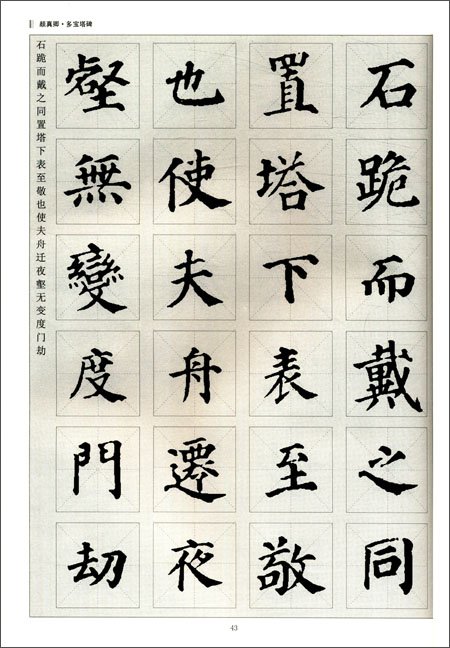 颜真卿·多宝塔碑
石跪而戴之同置塔下表至敬也使夫舟迁夜壑无变度门劫
石跪而戴之同
置塔下表至敬
也使夫舟遷夜
壑無變度門劫
43